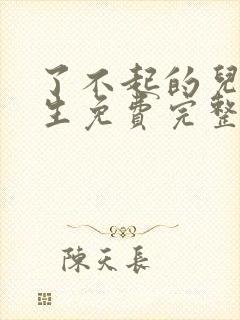 了不起的兒
生免費完整
陳天長